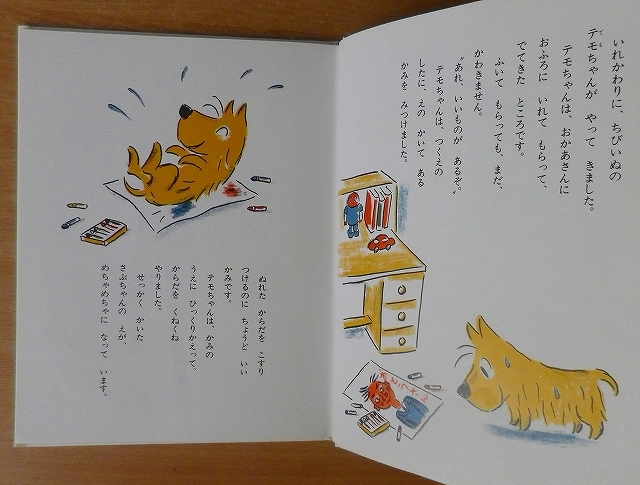 いれかわりに、ちびいぬの
テモちゃんが やって きました。
テモちゃんは、おかあさんに
おふろに いれて もらって、
でてきた ところです。
ふいて もらっても、まだ、
かわきません。
"あれ、いいものが あるぞ。"
テモちゃんは、つくえの
したに、えの かいて ある
かみを みつけました。
ぬれた からだを こすり
つけるのに ちょうど いい
かみです。
テモちゃんは、かみの
うえに ひっくりかえって、
からだを くねくね
やりました。
せっかく かいた
さぶちゃんの えが、
めちゃめちゃに なって います。